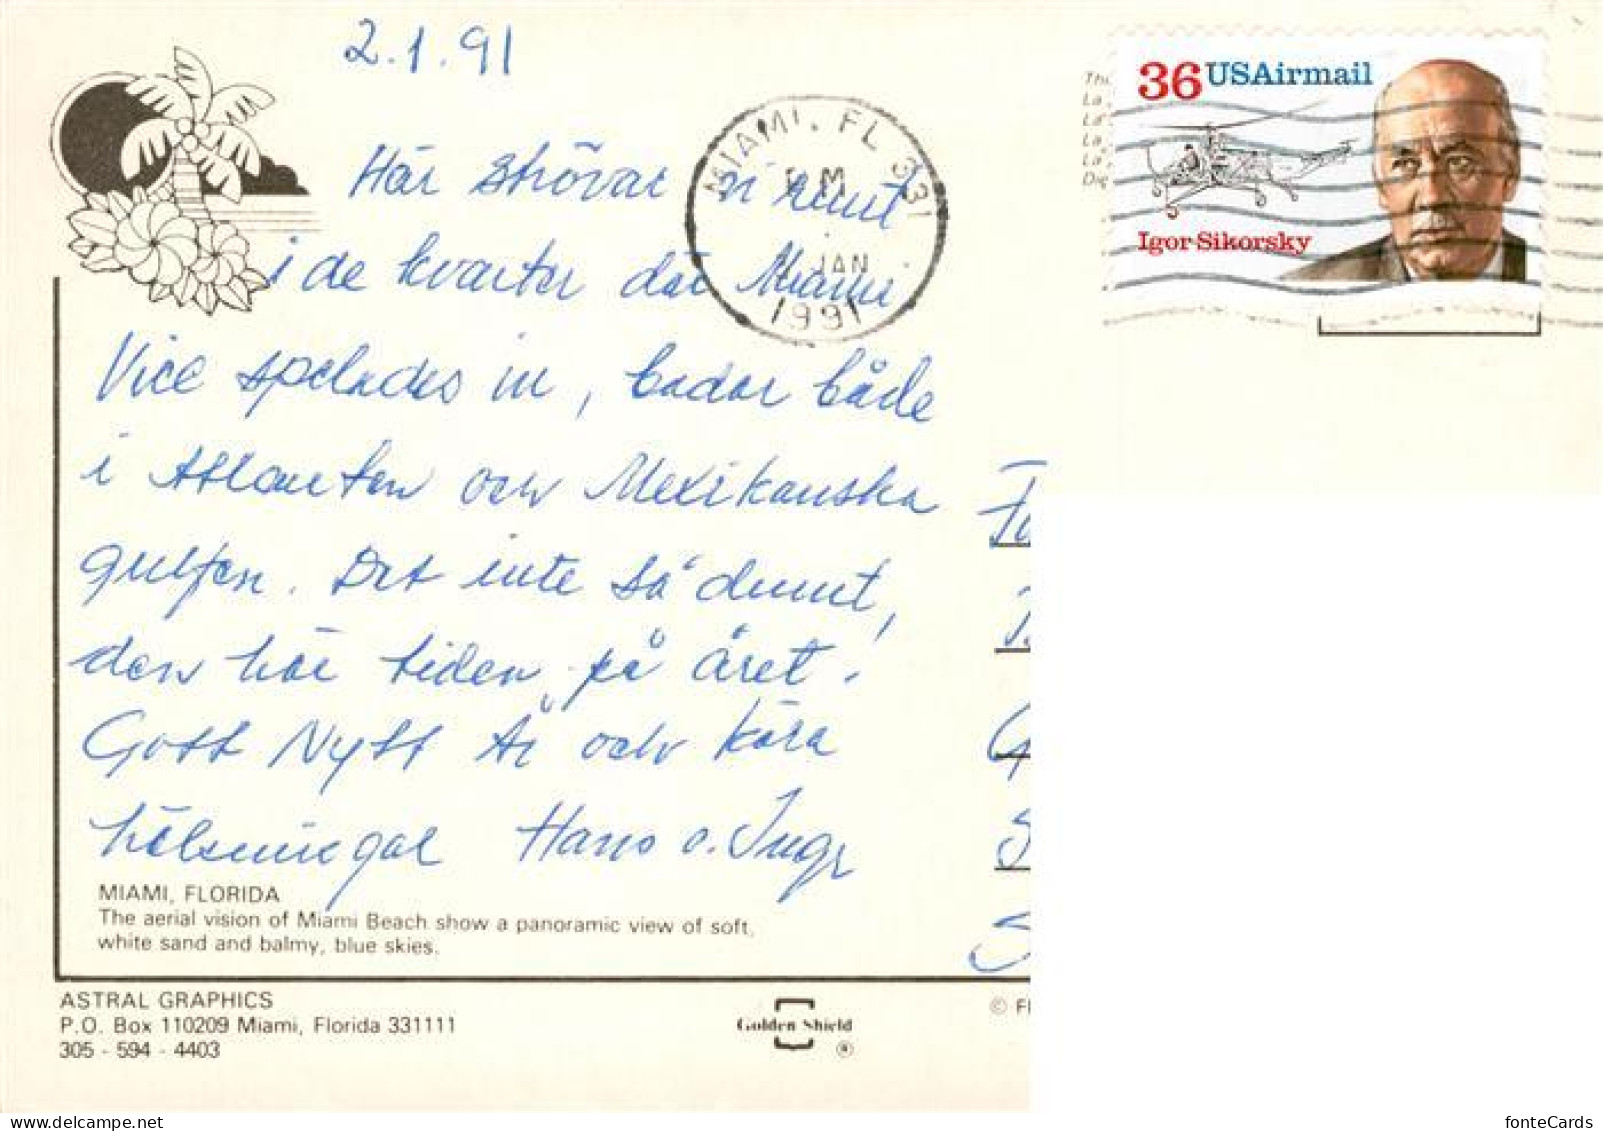 2.1.91
Här strövar vi runt
i de kvarter där Miami
Vice spelades in, badar både
i Atlanten och Mexikanska
gulfen. Det inte så dumt,
den här tiden på året.
Gott Nytt År och kära
hälsningar Hans o. Inger
MIAMI, FL 331
PM
JAN
1991
36 USAirmail
Igor Sikorsky
MIAMI, FLORIDA
The aerial vision of Miami Beach show a panoramic view of soft,
white sand and balmy, blue skies.
ASTRAL GRAPHICS
P.O. Box 110209 Miami, Florida 331111
305 - 594 - 4403
Golden Shield
®
© Fl
fonteCards